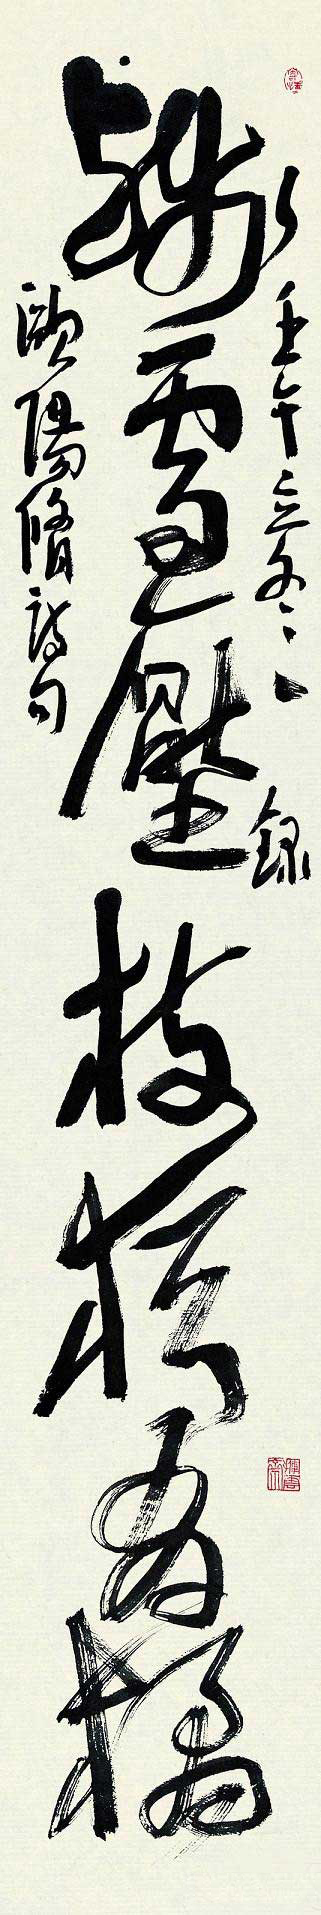 壬午立冬録
殘雪壓枝猶有橘
歐陽脩詩句